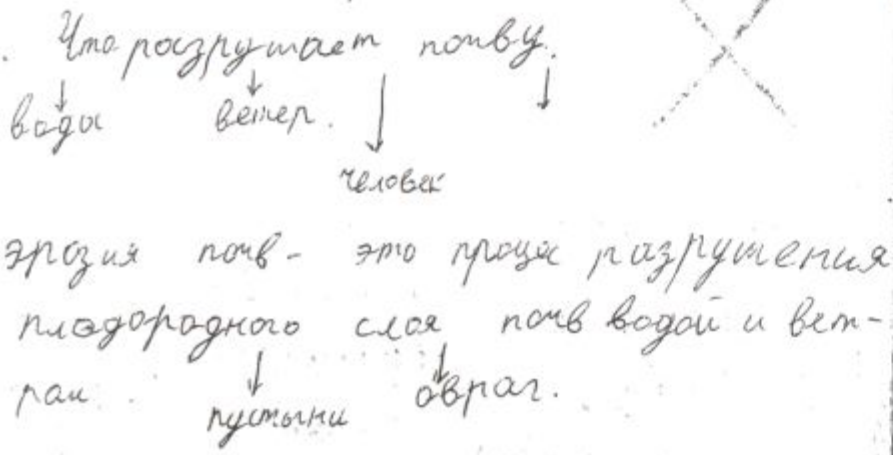 Что разрушает почву.
вода ветер.
человек
эрозия почв- это процес разрушения
плодородного слоя почв водой и вет-
ром
пустыни овраг.